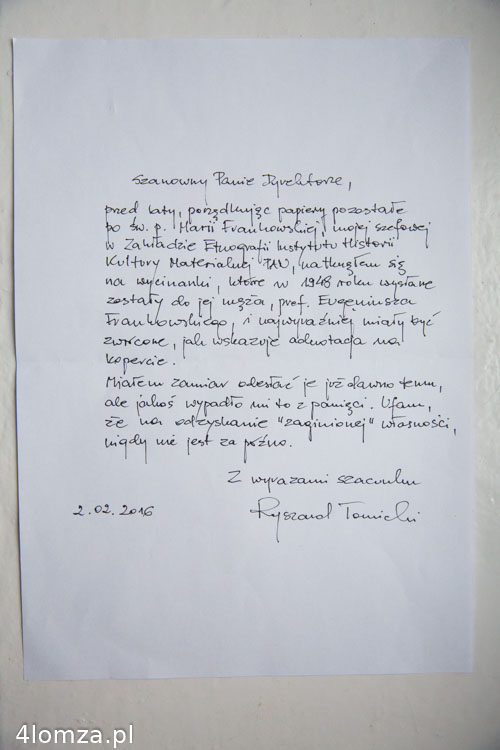 Szanowny Panie Dyrektorze,
przed laty, porządkując papiery pozostałe
po św. p. Marii Frankowskiej, mojej szefowej
w Zakładzie Etnografii Instytutu Historii
Kultury Materialnej PAN, natknąłem się
na wycinanki, które w 1948 roku wysłane
zostały do jej męża, prof. Eugeniusza
Frankowskiego, i najwyraźniej miały być
zwrócone, jak wskazuje adnotacja na
kopercie.
Miałem zamiar odesłać je już dawno temu,
ale jakoś wypadło mi to z pamięci. Ufam,
że na odzyskanie "zaginionej" własności,
nigdy nie jest za późno.
Z wyrazami szacunku
2.02.2016 Ryszard Tomicki
4lomza.pl